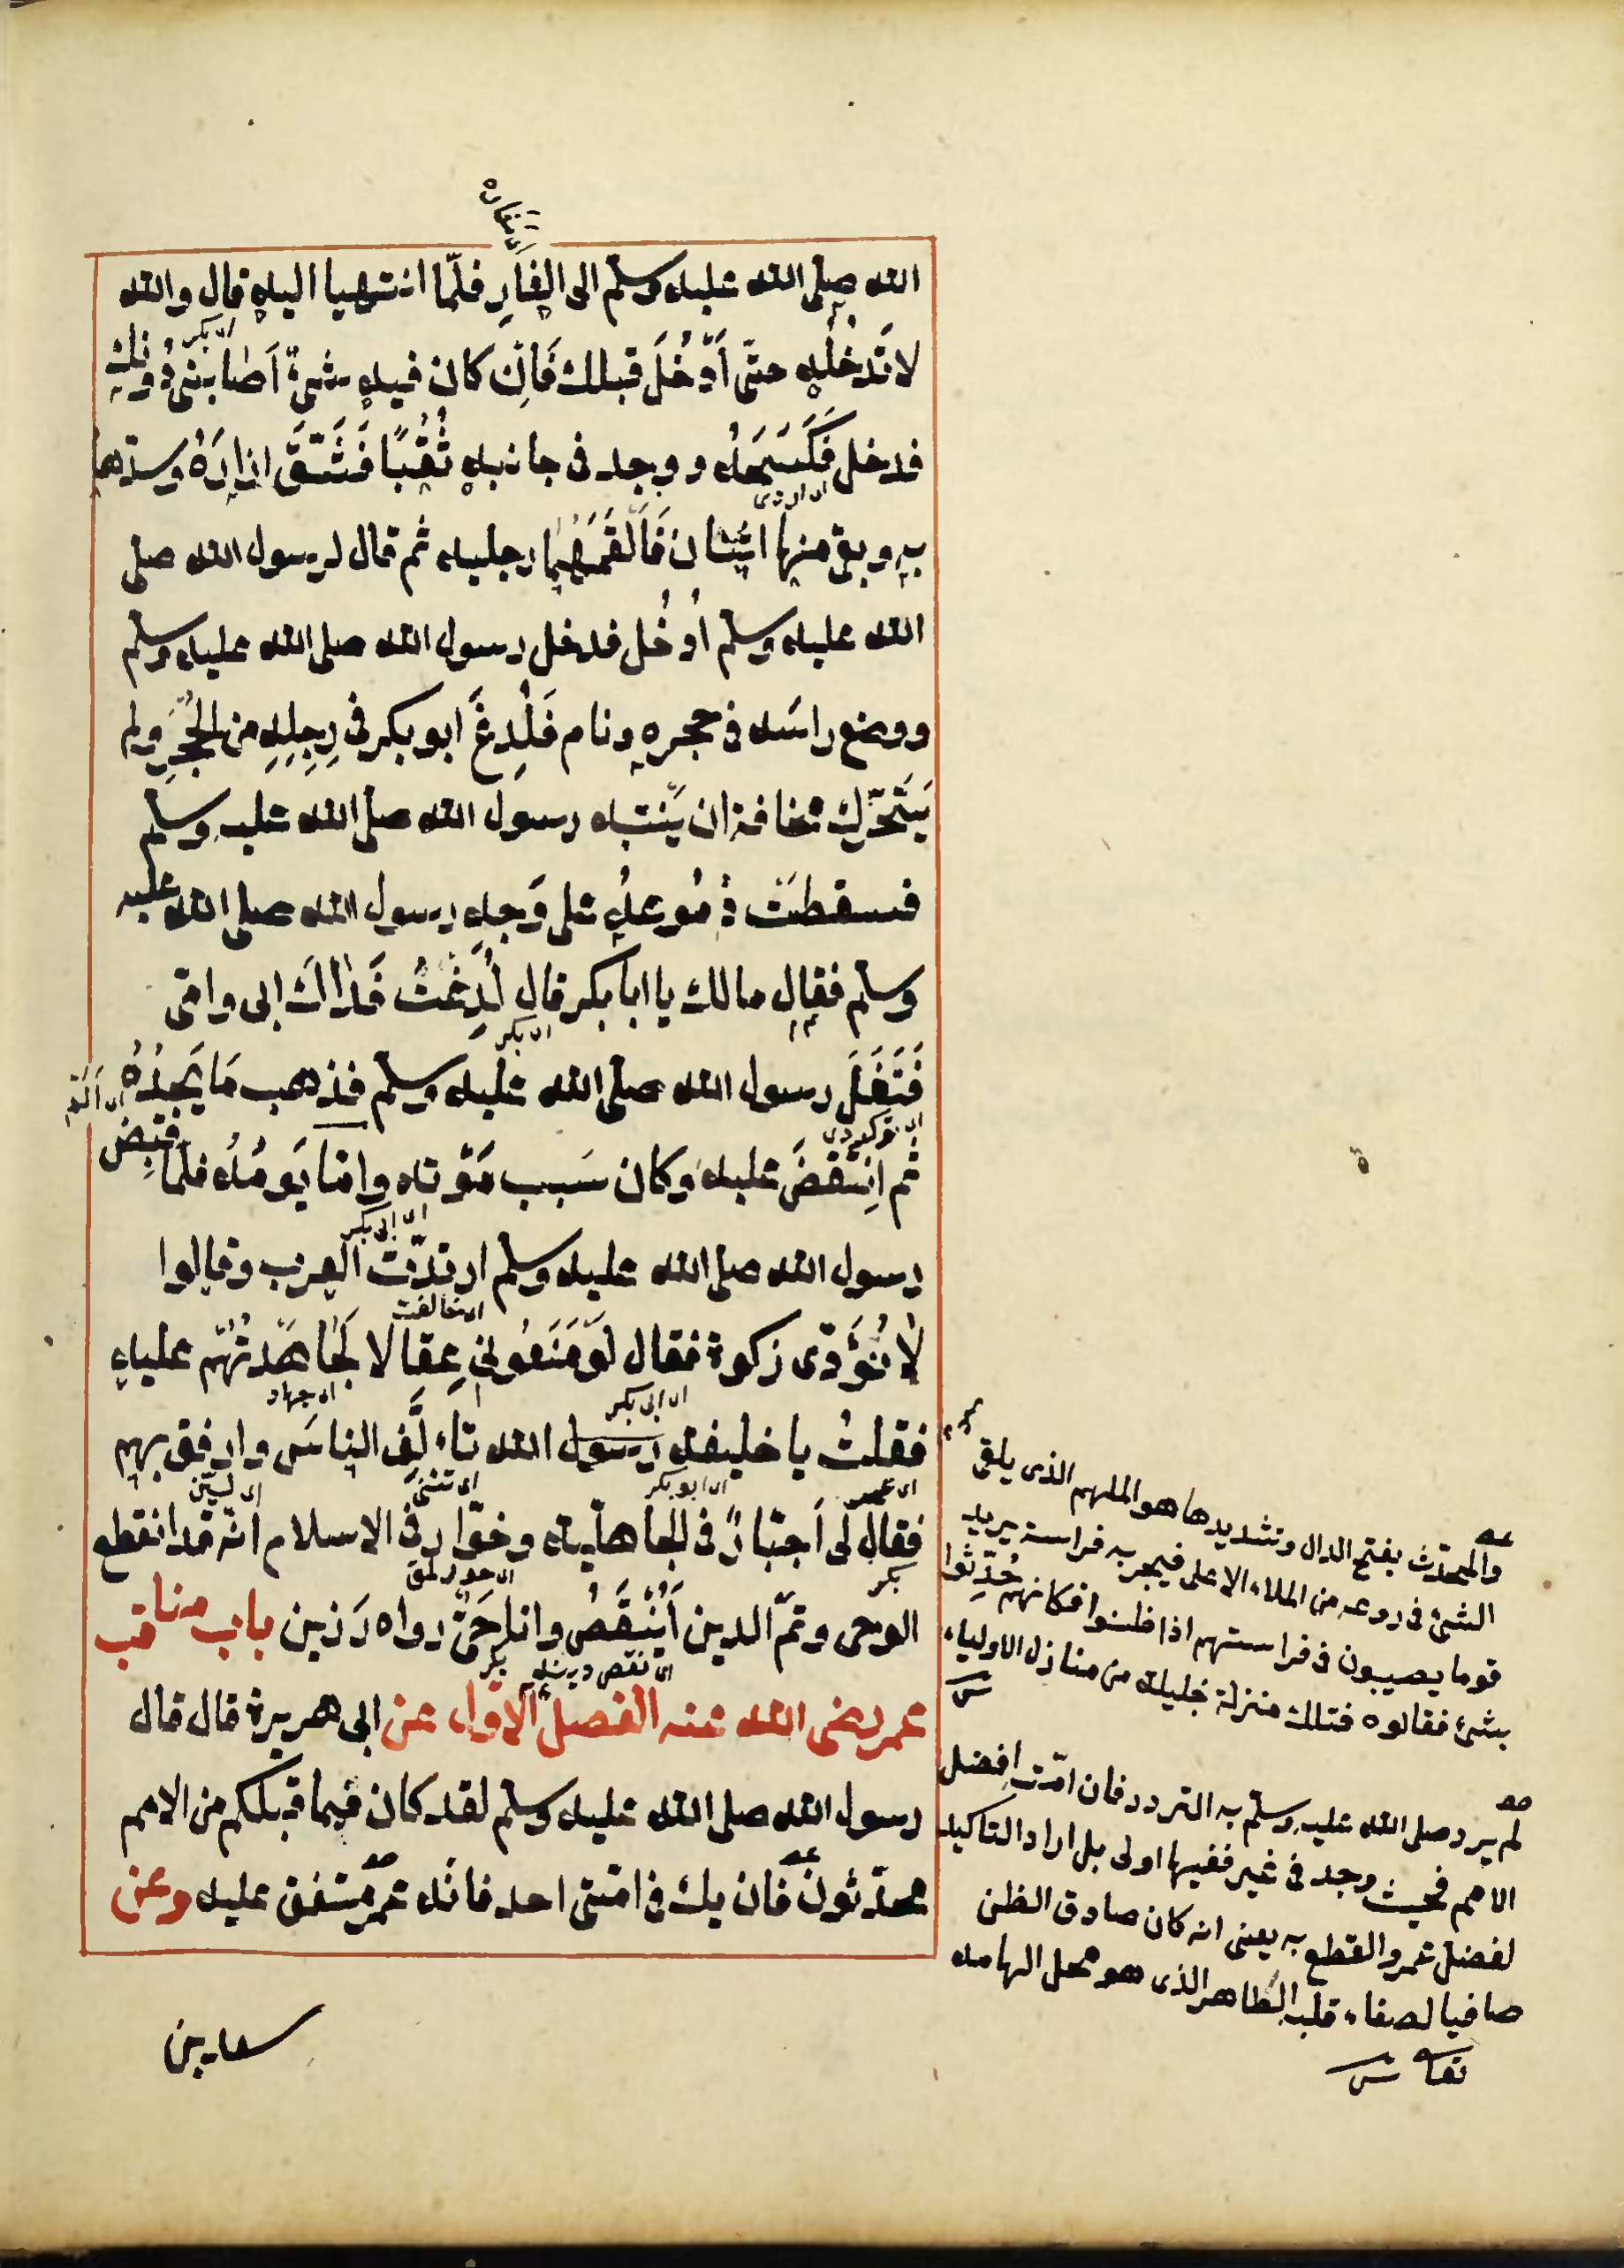 الله صلى الله عليه وسلم الى الغار فلمّا انتهيا اليه قال والله
لا تَدخُلُه حتّى اَدْخُلَ قبلك فَاِن كان فيه شئٌ اَصَابَنِى دُونك
فدخل فَكَسَحَهُ ووجد فى جانبه ثُقْبًا فَشَقَّ اِزارَهُ وسدّها
به وبقى منها اثنان فَاَلْقَمَهُمَا رجليه ثم قال لرسول الله صلى
الله عليه وسلم اُدْخُل فدخل رسول الله صلى الله عليه وسلم
ووضع راسَه فى حجره ونام فَلُدِغَ ابو بكر فى رِجلِهِ من الجُحْرِ ولم
يَتَحَرّك مخافة ان يَنتبه رسول الله صلى الله عليه وسلم
فسقطَت دُمُوعهُ على وَجهِ رسول الله صلى الله عليه
وسلم فقال مالك يا ابا بكر قال لُدِغْتُ فَداكَ ابى وامّى
فَتَفَلَ رسول الله صلى الله عليه وسلم فذهب مَا يَجِدُهُ
ثم اِنْتَقَضَ عليه وكان سَبب مَوْته وامّا يَومُهُ فلمّا قبِضَ
رسول الله صلى الله عليه وسلم ارتدّت العرب وقالوا
لا نُؤَدّى زكوة فقال لَوْ مَنَعُونِى عِقالا لَجَاهَدتُهُم عليه
فقلتُ يا خليفة رسول الله تاَلَّفِ الناسَ وارفق بهم
فقال لى اَجَبّارٌ فى الجاهليّة وخوّار فى الاسلام انّه قد انقطع
الوحى وتمّ الدين اَيُنْقَصُ وانا حَىٌّ رواه رَزين باب مناقب
عمر رضى الله عنه الفصل الاوّل عن ابى هريرة قال قال
رسول الله صلى الله عليه وسلم لقد كان فيما قبلكم من الامم
محدّثون فان يك فى امّتى احد فانّه عمر متفق عليه وعن
والمحدّث بفتح الدال وتشديدها هو الملهم الذى يلقى
الشئ فى روعه من الملاء الاعلى فيخبر به فراسة يريد
قوما يصيبون فى فراستهم اذا ظنوا فكانهم حُدِّثوا
بشئ فقالوه فتلك منزلة جليلة من منازل الاولياء
لم يرد صلى الله عليه وسلم به التردد فان امّته افضل
الامم فحيث وجد فى غير ففيها اولى بل اراد التاكيد
لفضل عمر والقطع به يعنى انه كان صادق الظن
صافيا لصفاء قلبه الطاهر الذى هو محل الهامه